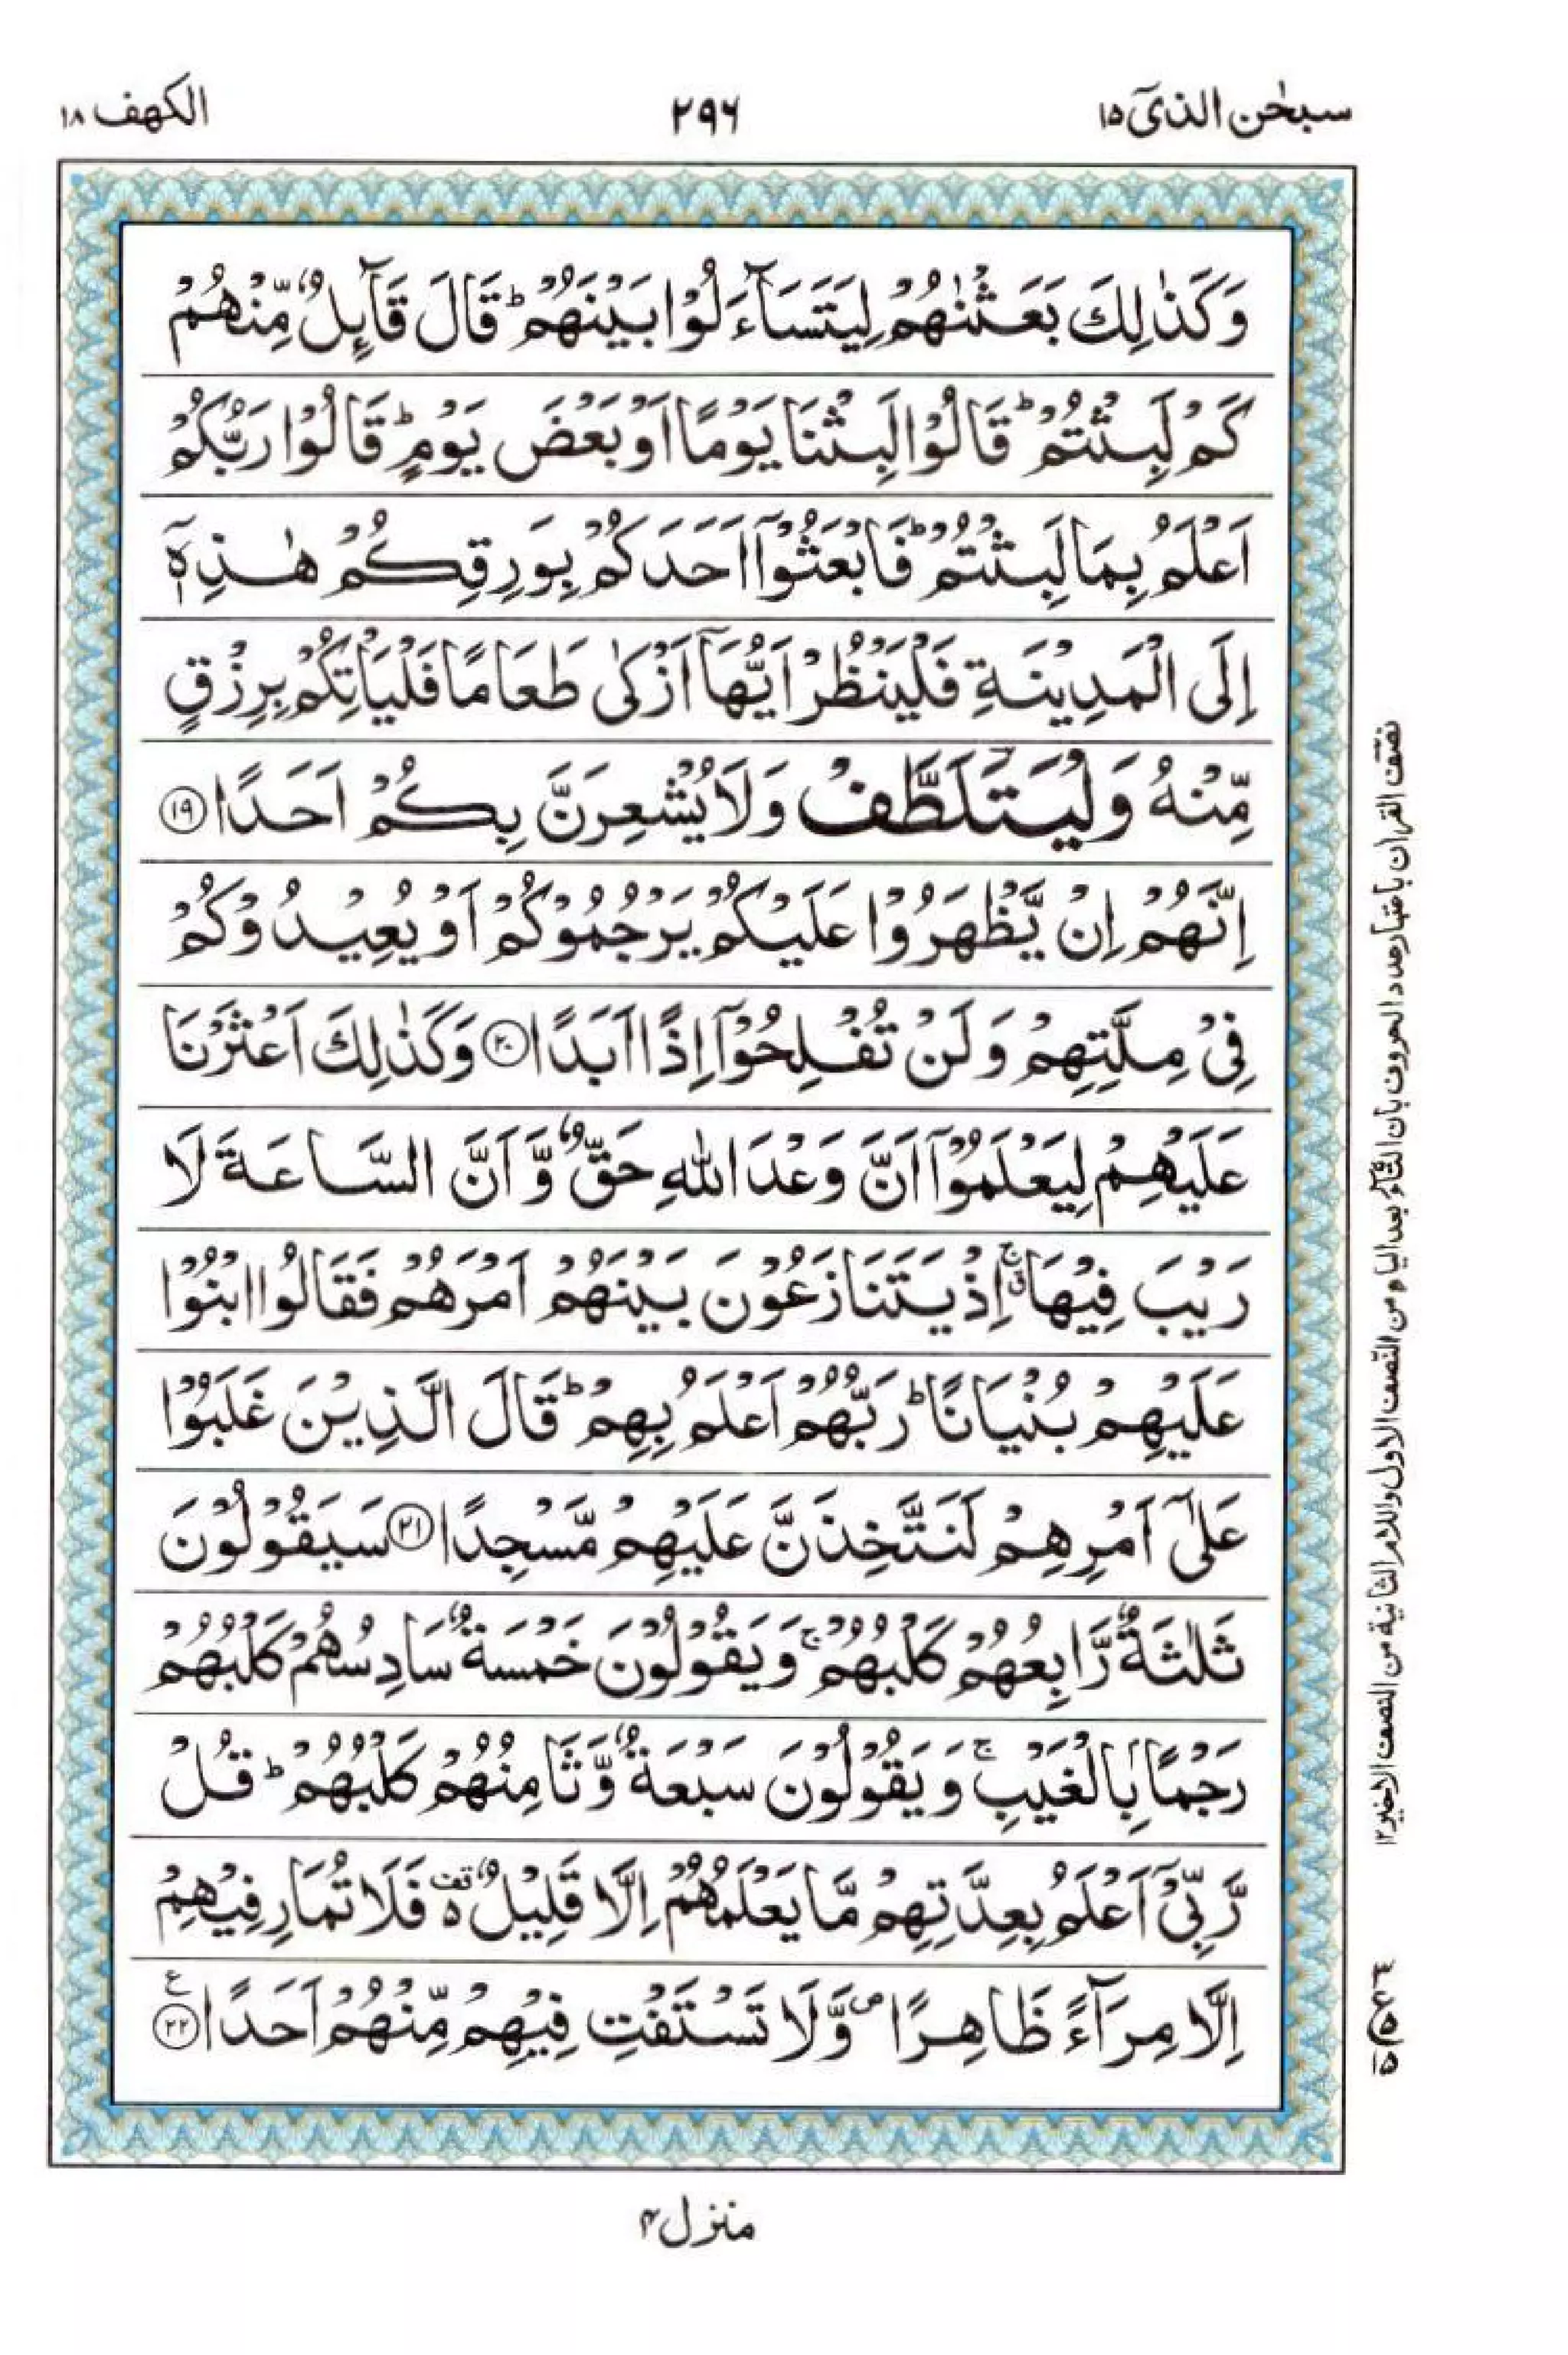 سبحٰن الذیٓ ۱۵
۲۹۶
الکهف ۱۸
وَكَذٰلِكَ بَعَثْنٰهُمْ لِيَتَسَآءَلُوْا بَيْنَهُمْ ؕ قَالَ قَآئِلٌ مِّنْهُمْ
كَمْ لَبِثْتُمْ ؕ قَالُوْا لَبِثْنَا يَوْمًا اَوْ بَعْضَ يَوْمٍ ؕ قَالُوْا رَبُّكُمْ
اَعْلَمُ بِمَا لَبِثْتُمْ ؕ فَابْعَثُوْۤا اَحَدَكُمْ بِوَرِقِكُمْ هٰذِهٖۤ
اِلَى الْمَدِيْنَةِ فَلْيَنْظُرْ اَيُّهَاۤ اَزْكٰى طَعَامًا فَلْيَاْتِكُمْ بِرِزْقٍ
مِّنْهُ وَلْيَتَلَطَّفْ وَلَا يُشْعِرَنَّ بِكُمْ اَحَدًا ۝۱۹
اِنَّهُمْ اِنْ يَّظْهَرُوْا عَلَيْكُمْ يَرْجُمُوْكُمْ اَوْ يُعِيْدُوْكُمْ
فِيْ مِلَّتِهِمْ وَلَنْ تُفْلِحُوْۤا اِذًا اَبَدًا ۝۲۰ وَكَذٰلِكَ اَعْثَرْنَا
عَلَيْهِمْ لِيَعْلَمُوْۤا اَنَّ وَعْدَ اللّٰهِ حَقٌّ وَّاَنَّ السَّاعَةَ لَا
رَيْبَ فِيْهَا ۚۗ اِذْ يَتَنَازَعُوْنَ بَيْنَهُمْ اَمْرَهُمْ فَقَالُوا ابْنُوْا
عَلَيْهِمْ بُنْيَانًا ؕ رَبُّهُمْ اَعْلَمُ بِهِمْ ؕ قَالَ الَّذِيْنَ غَلَبُوْا
عَلٰٓى اَمْرِهِمْ لَنَتَّخِذَنَّ عَلَيْهِمْ مَّسْجِدًا ۝۲۱ سَيَقُوْلُوْنَ
ثَلٰثَةٌ رَّابِعُهُمْ كَلْبُهُمْ ۚ وَيَقُوْلُوْنَ خَمْسَةٌ سَادِسُهُمْ كَلْبُهُمْ
رَجْمًۢا بِالْغَيْبِ ۚ وَيَقُوْلُوْنَ سَبْعَةٌ وَّثَامِنُهُمْ كَلْبُهُمْ ؕ قُلْ
رَّبِّيْۤ اَعْلَمُ بِعِدَّتِهِمْ مَّا يَعْلَمُهُمْ اِلَّا قَلِيْلٌ ۵ قف فَلَا تُمَارِ فِيْهِمْ
اِلَّا مِرَآءً ظَاهِرًا ص وَّلَا تَسْتَفْتِ فِيْهِمْ مِّنْهُمْ اَحَدًا ۝۲۲ ع
نصف القراٰن باعتبار عدد الحروف بان التاء بعد الیاء من النّصف الاول واللام الثانیة من النصف الاخیر ۱۲
منزل ۴